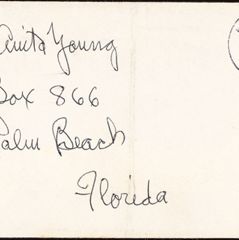 Anita Young
Box 866
Palm Beach
Florida